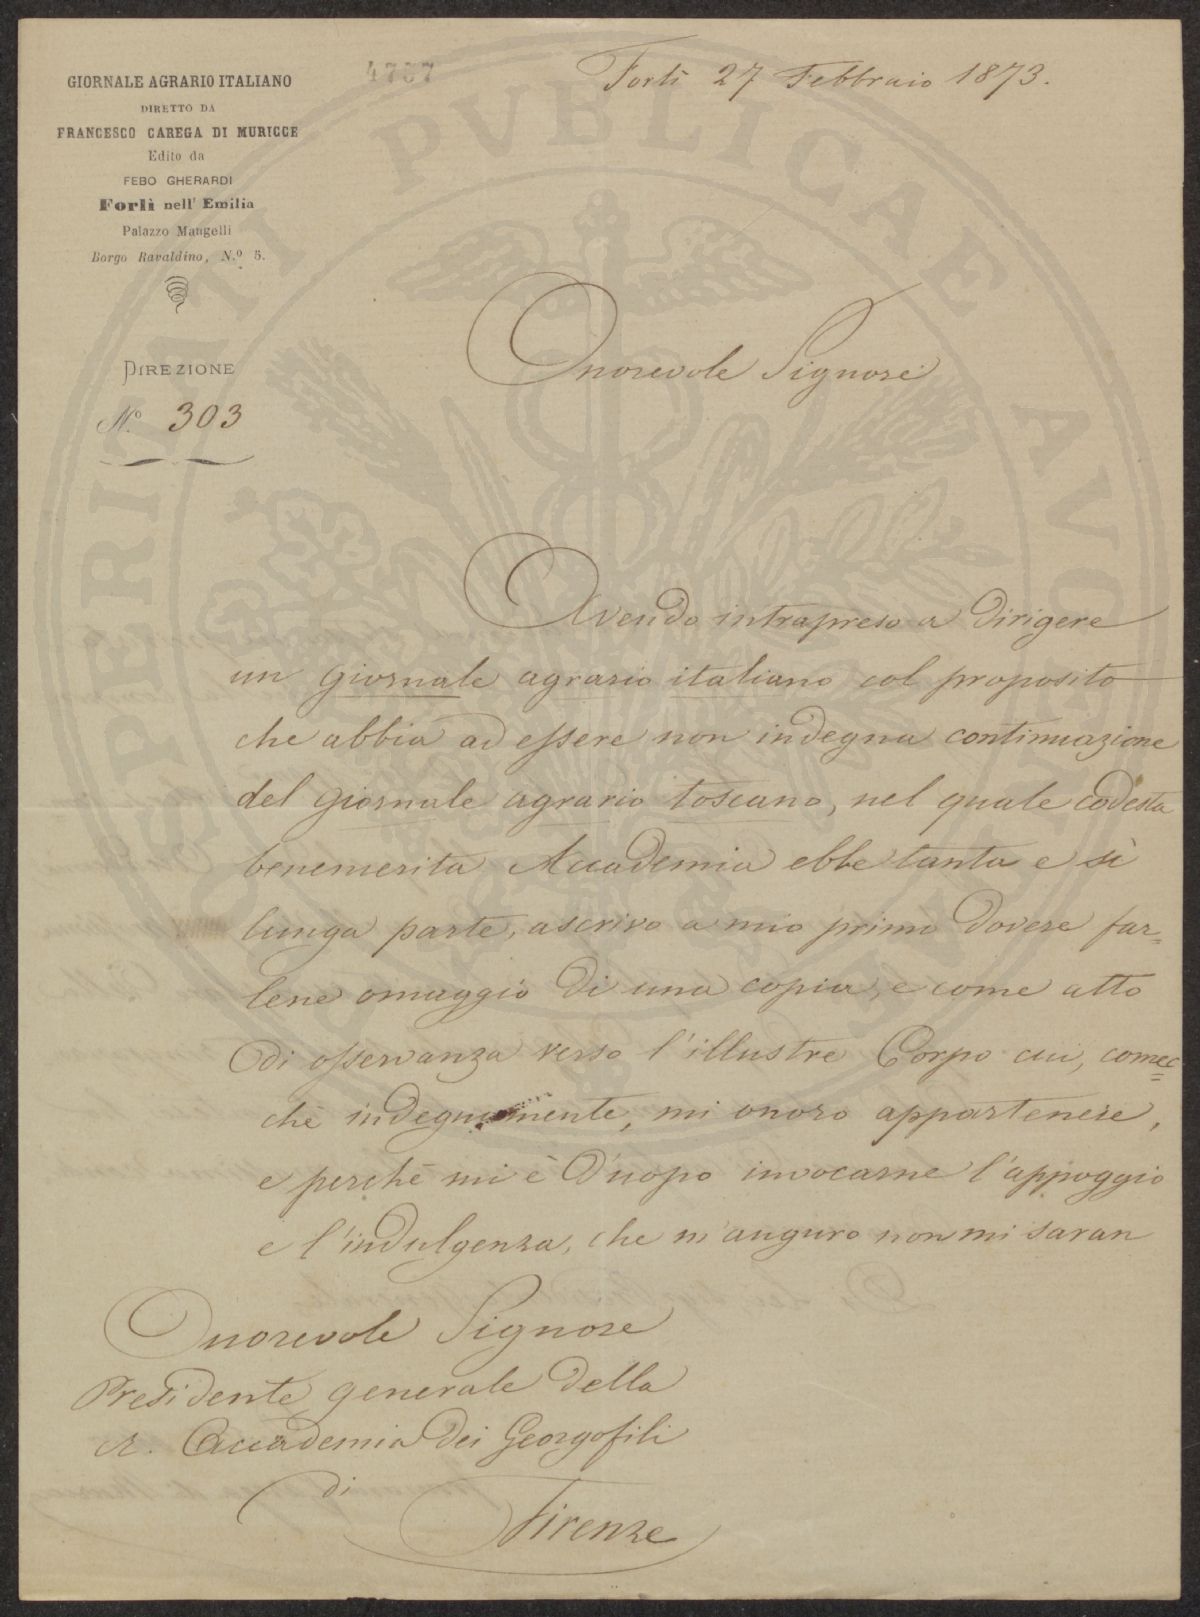 GIORNALE AGRARIO ITALIANO
DIRETTO DA
FRANCESCO CAREGA DI MURICCE
Edito da
FEBO GHERARDI
Forlì nell' Emilia
Palazzo Mangelli
Borgo Ravaldino, N.º 5.
DIREZIONE
N.º 303
4787
Forlì 27 Febbraio 1873.
Onorevole Signore
Avendo intrapreso a dirigere
un giornale agrario italiano col proposito
che abbia ad essere non indegna continuazione
del giornale agrario toscano, nel quale codesta
benemerita Accademia ebbe tanta e sì
lunga parte, ascrivo a mio primo dovere far=
lene omaggio di una copia, e come atto
di osservanza verso l'illustre Corpo cui, comec=
chè indegnamente, mi onoro appartenere,
e perchè mi è d'uopo invocarne l'appoggio
e l'indulgenza, che m'auguro non mi saran
Onorevole Signore
Presidente generale della
R. Accademia dei Georgofili
di
Firenze
PROSPERITATI PVBLICAE AVGENDAE